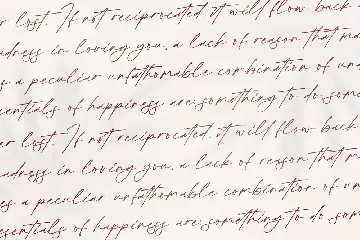 r lost. If not reciprocated, it will flow back
adness in loving you, a lack of reason that ma
s, a peculiar unfathomable combination of un
sentials of happiness are; something to do, some
er lost. If not reciprocated, it will flow back
adness in loving you, a lack of reason that m
es, a peculiar unfathomable combination of u
ssentials of happiness are; something to do, som